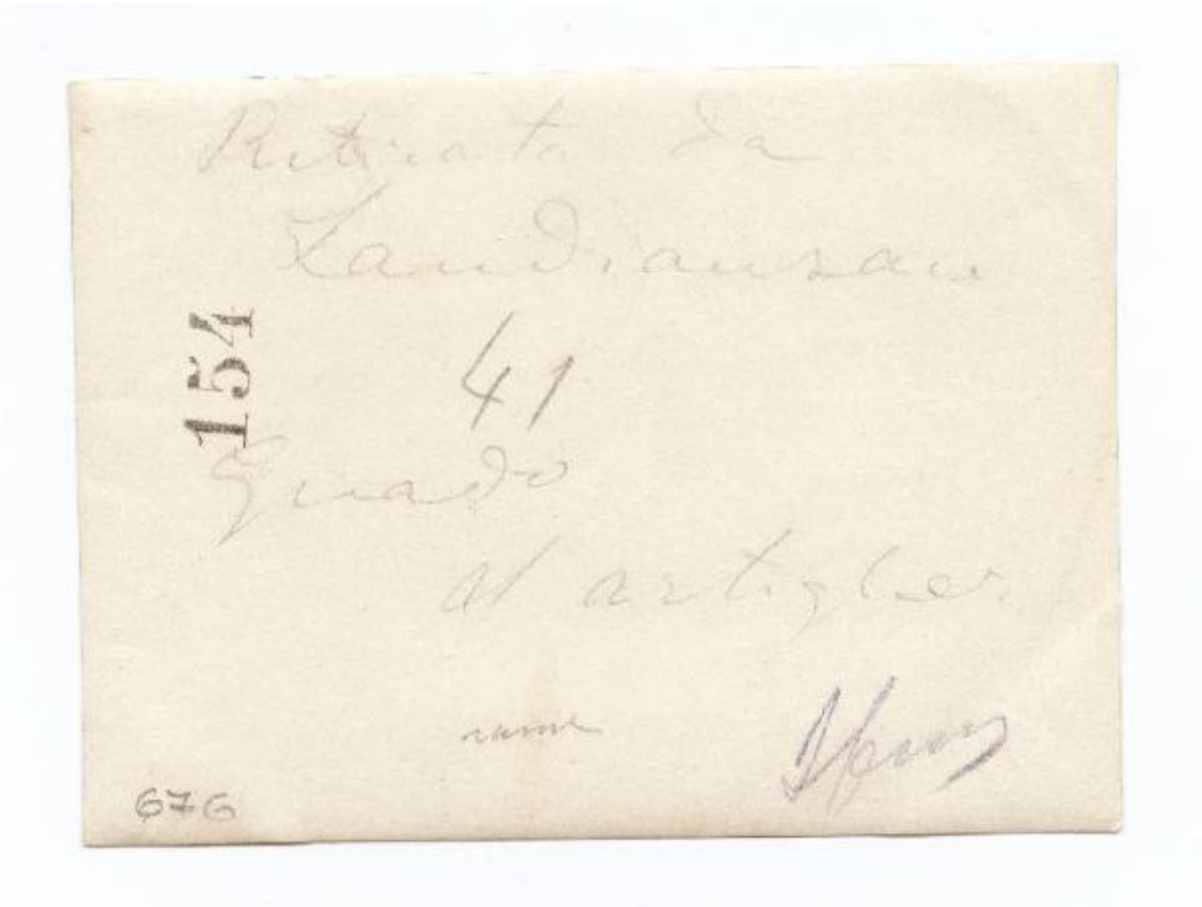 Ritirata da
Landiansan
154
41
Guado
d'artiglier.
676